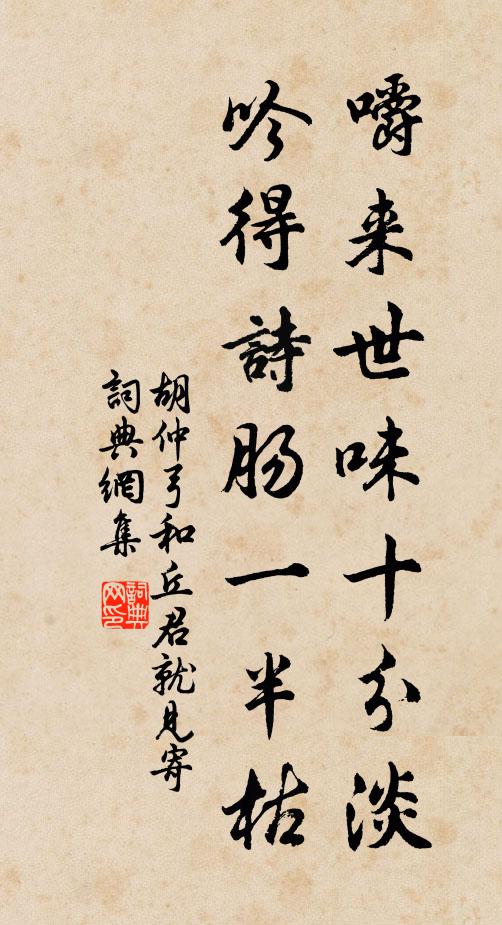 嚼来世味十分淡
吟得詩腸一半枯
胡仲弓和丘君就見寄
詞典網集
詞典网印